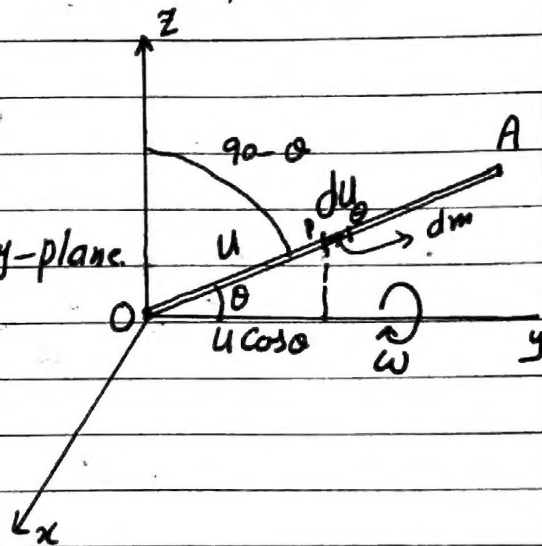 z
90-θ
A
du
P
Q
dm
u
y-plane.
θ
O
u cosθ
ω
y
x